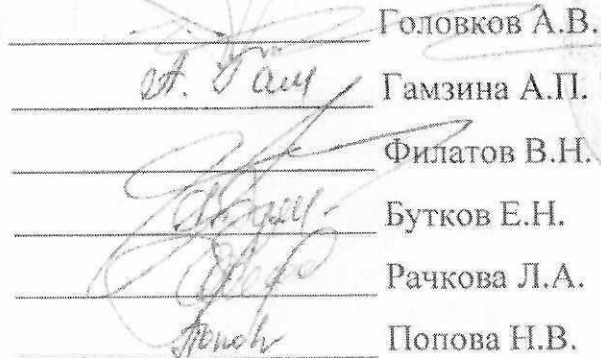 Головков А.В.
Гамзина А.П.
Филатов В.Н.
Бутков Е.Н.
Рачкова Л.А.
Попова Н.В.